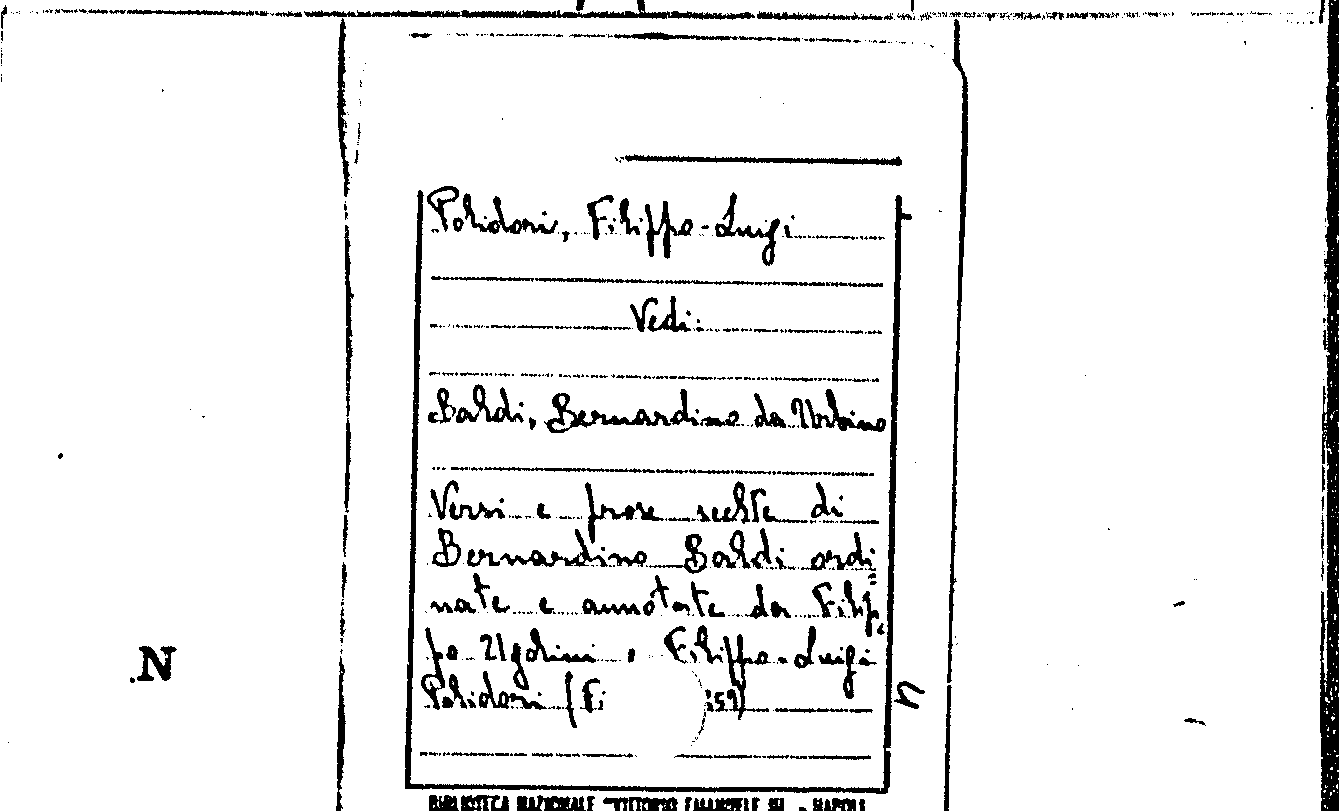 Polidori, Filippo-Luigi
Vedi:
Baldi, Bernardino da Urbino
Versi e prose scelte di
Bernardino Baldi ordi=
nate e annotate da Filip=
po Ugolini e Filippo-Luigi
Polidori (Fi 859)
N
4
BIBLIOTECA NAZIONALE "VITTORIO EMANUELE III" - NAPOLI